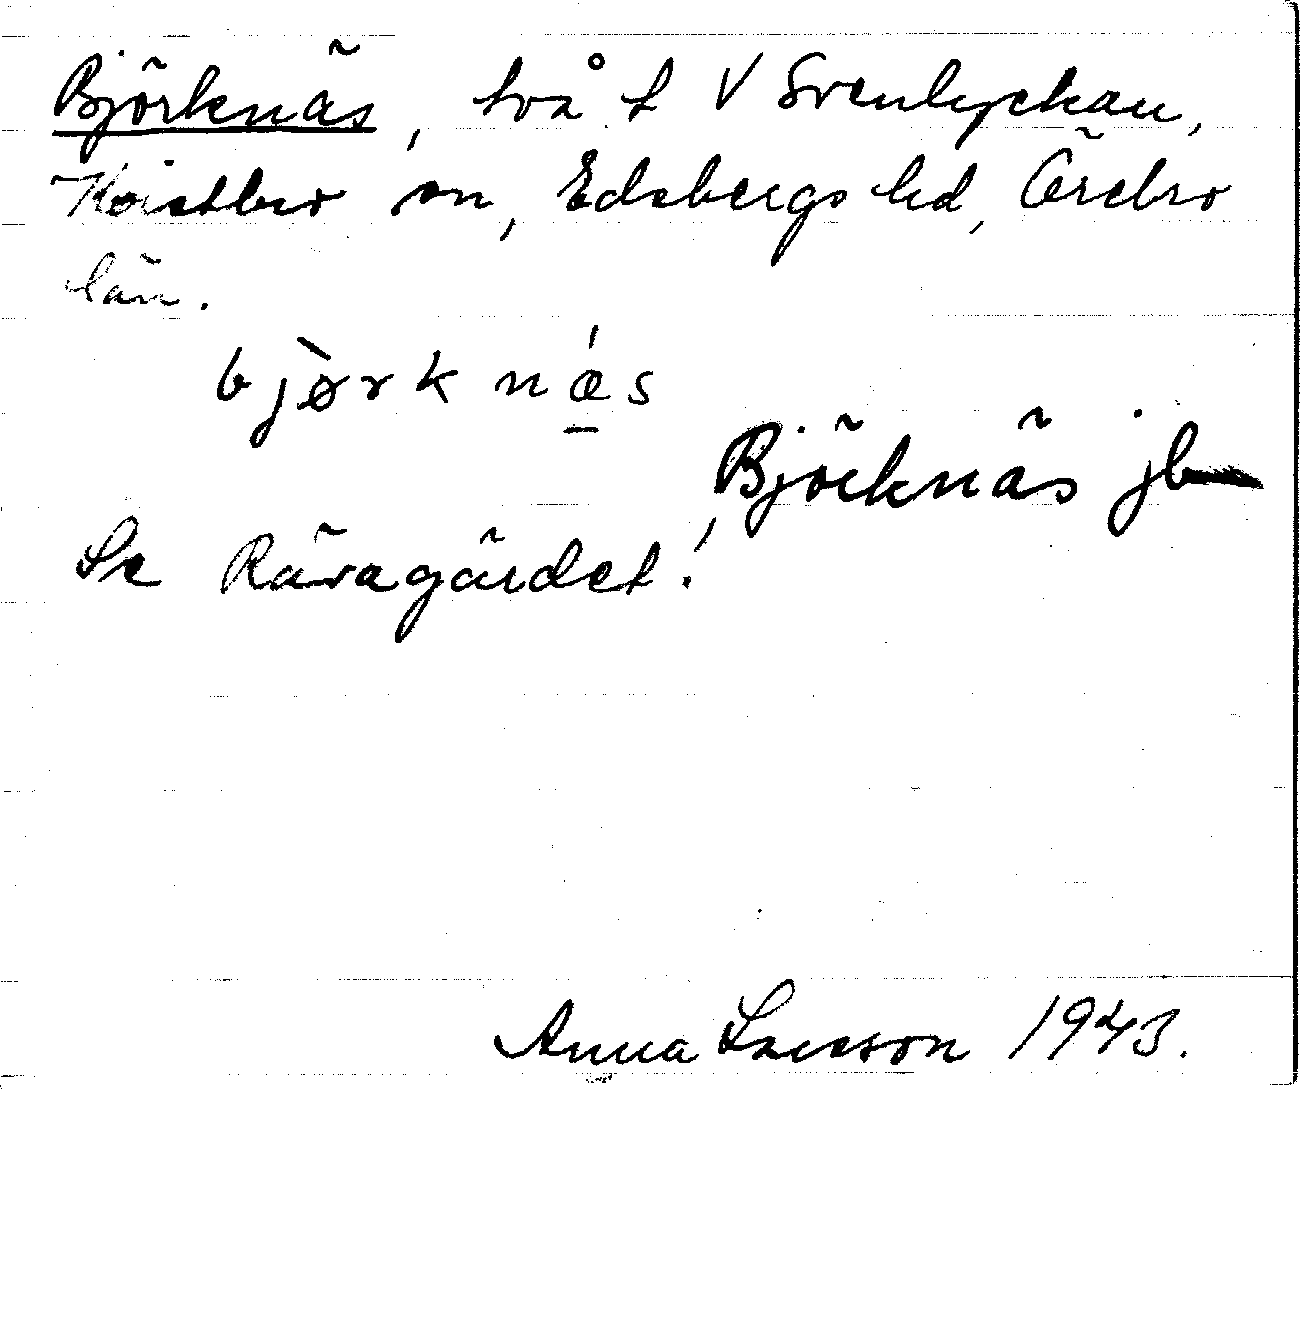 Björknäs, två t V Svenlyckan,
Kvistbro sn, Edsbergs hd, Örebro
län.
bjø̀rknǽs
Björknäs jb
Se Rävagärdet!
Anna Larsson 1943.